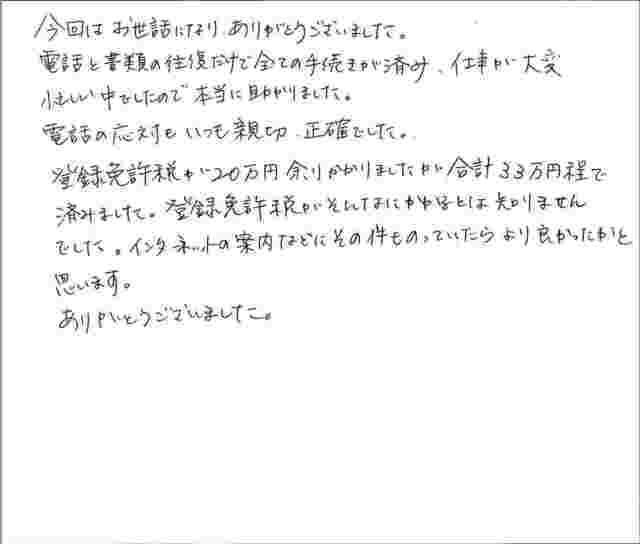 今回は お世話になり、ありがとうございました。
電話と書類の往復だけで全ての手続きが済み、仕事が大変
忙しい中でしたので本当に助かりました。
電話の応対も いつも親切、正確でした。
登録免許税が20万円余りかかりましたが合計33万円程で
済みました。登録免許税がそんなにかかるとは知りません
でした。インタネットの案内などにその件ものっていたらより良かったかと
思います。
ありがとうございました。